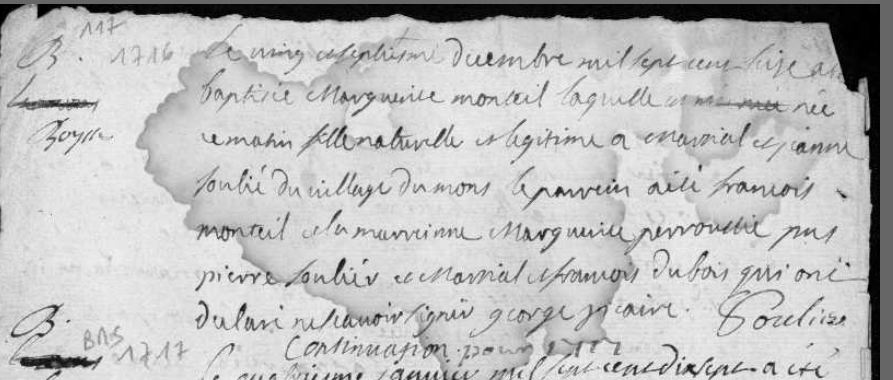 117
B. 1716 Le vingt et septhieme decembre mil sept cent seise a esté
baptisée Marguerite monteil laquelle est née
ce matin fille naturelle et legitime a Martial et jeanne
soulié du village du mons le parrein a été francois
monteil et la marreinne Marguerite perrouthie pns
pierre soulier et Martial et francois dubois qui ont
declaré ne scavoir signer george vicaire. Soulier
B.
BMS 1717 Continuation pour 1717
Le quatrieme janvier mil sept cent dix sept a été